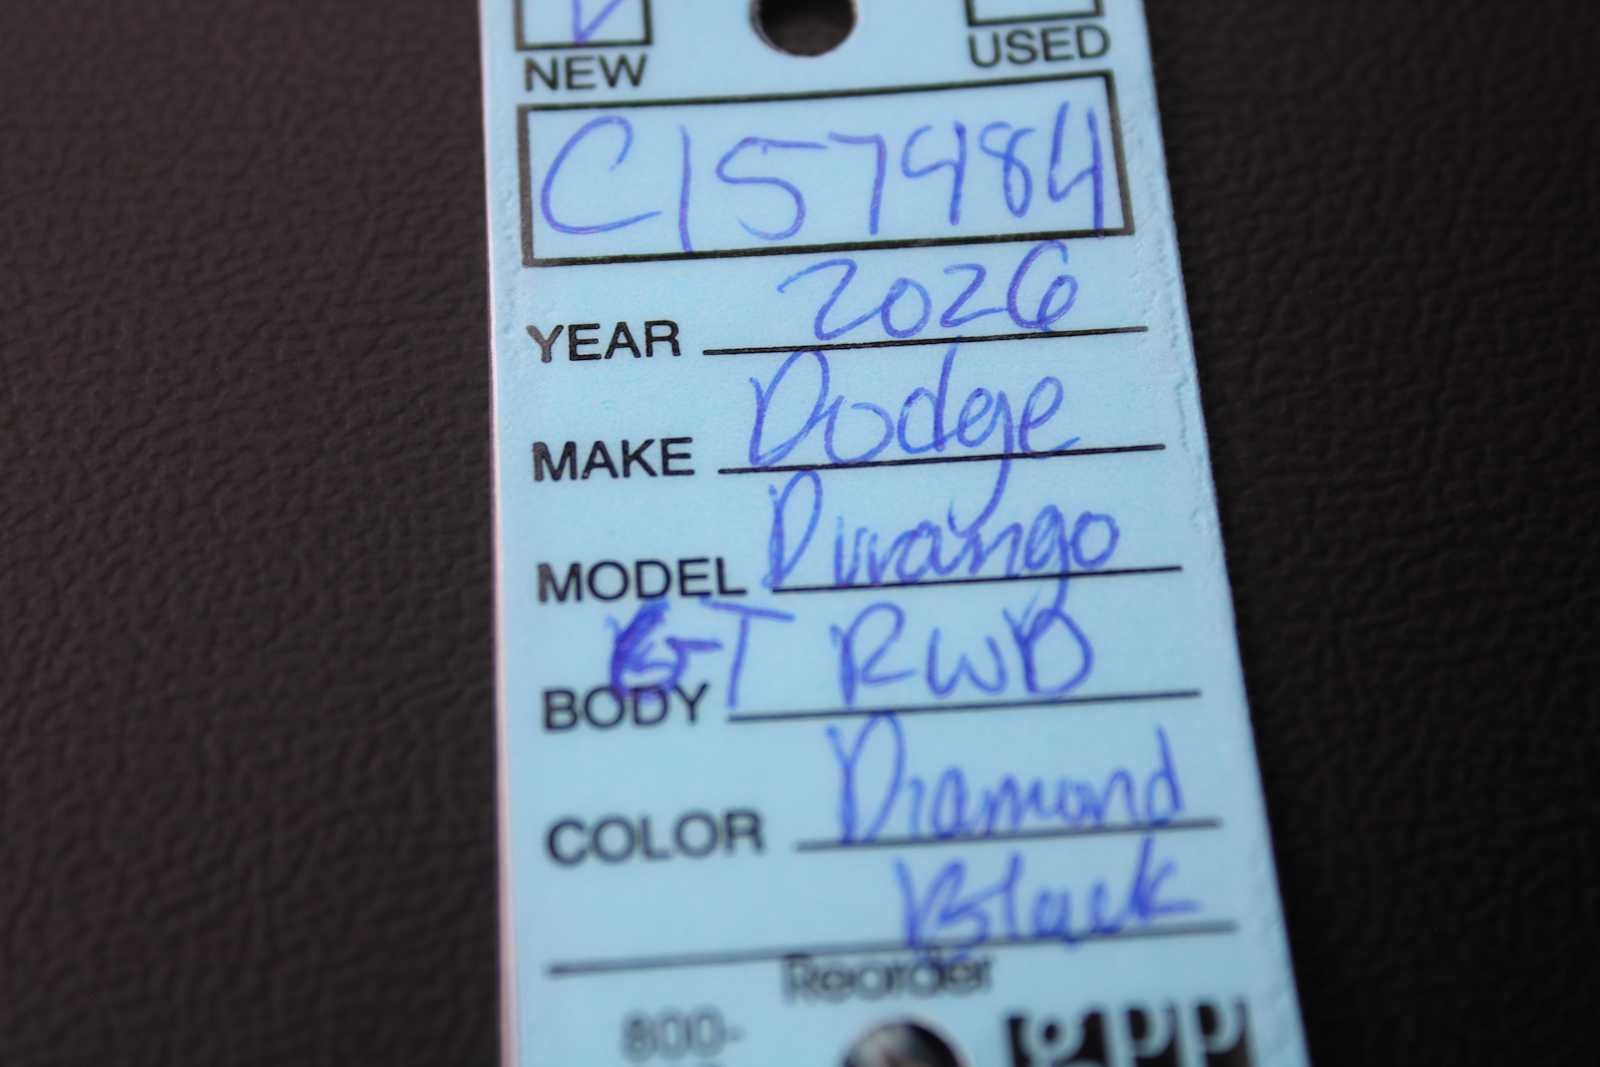 NEW USED
C157484
YEAR 2026
MAKE Dodge
MODEL Durango
BODY GT RWD
COLOR Diamond
Black
Reorder
800-
gpp